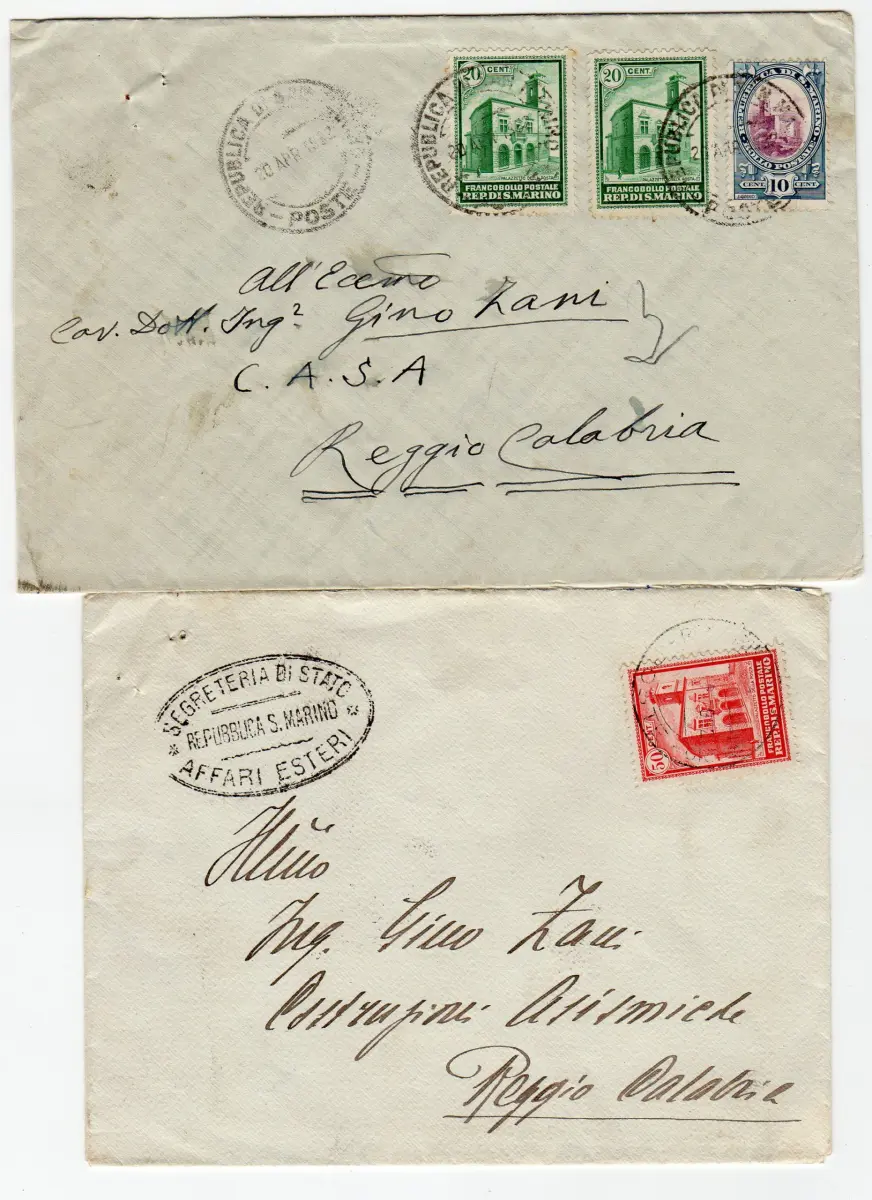 REPUBBLICA DI S. MARINO
20 APR
POSTE
20 CENT.
FRANCOBOLLO POSTALE
REP. DI S. MARINO
20 CENT.
FRANCOBOLLO POSTALE
REP. DI S. MARINO
REPUBBLICA DI S. MARINO
BOLLO POSTALE
CENT 10 CENT
All'Eccmo
Cav. Dott. Ingr Gino Zani
C. A. S. A
Reggio Calabria
SEGRETERIA DI STATO
REPUBBLICA S. MARINO
AFFARI ESTERI
50
FRANCOBOLLO POSTALE
REP. DI S. MARINO
Illmo
Ing. Gino Zani
Costruzioni Asismiche
Reggio Calabria